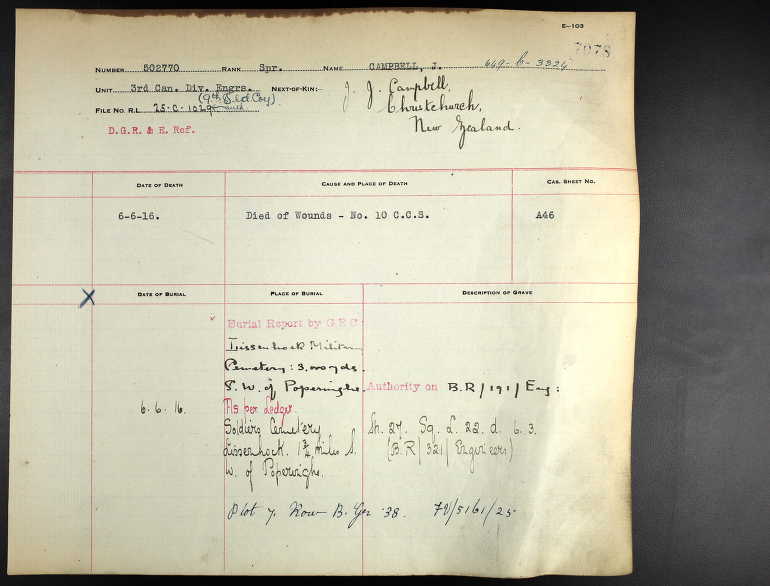 E—103
7078
NUMBER 502770 RANK Spr. NAME CAMPBELL, J. 649-C-3324
UNIT 3rd Can. Div. Engrs. NEXT-OF-KIN:- J. J. Campbell,
(9th Fld Coy) Christchurch,
FILE NO. R.L. 25-C-1029 New Zealand.
D.G.R. & E. Ref.
DATE OF DEATH CAUSE AND PLACE OF DEATH CAS. SHEET NO.
6-6-16. Died of Wounds - No. 10 C.C.S. A46
X DATE OF BURIAL PLACE OF BURIAL DESCRIPTION OF GRAVE
Burial Report by G.R.C.
Lissenhock Military
Cemetery: 3,000 yds.
S. W. of Poperinghe. Authority on B.R/191/Eng:
6. 6. 16. As per Ledger.
Soldiers Cemetery Sh. 27. Sq. L. 22. d. 6. 3.
Lissenhock. 1 3/4 miles S. (B.R/321/Engineers)
W. of Poperinghe.
Plot 7. Row B. Gr 38.